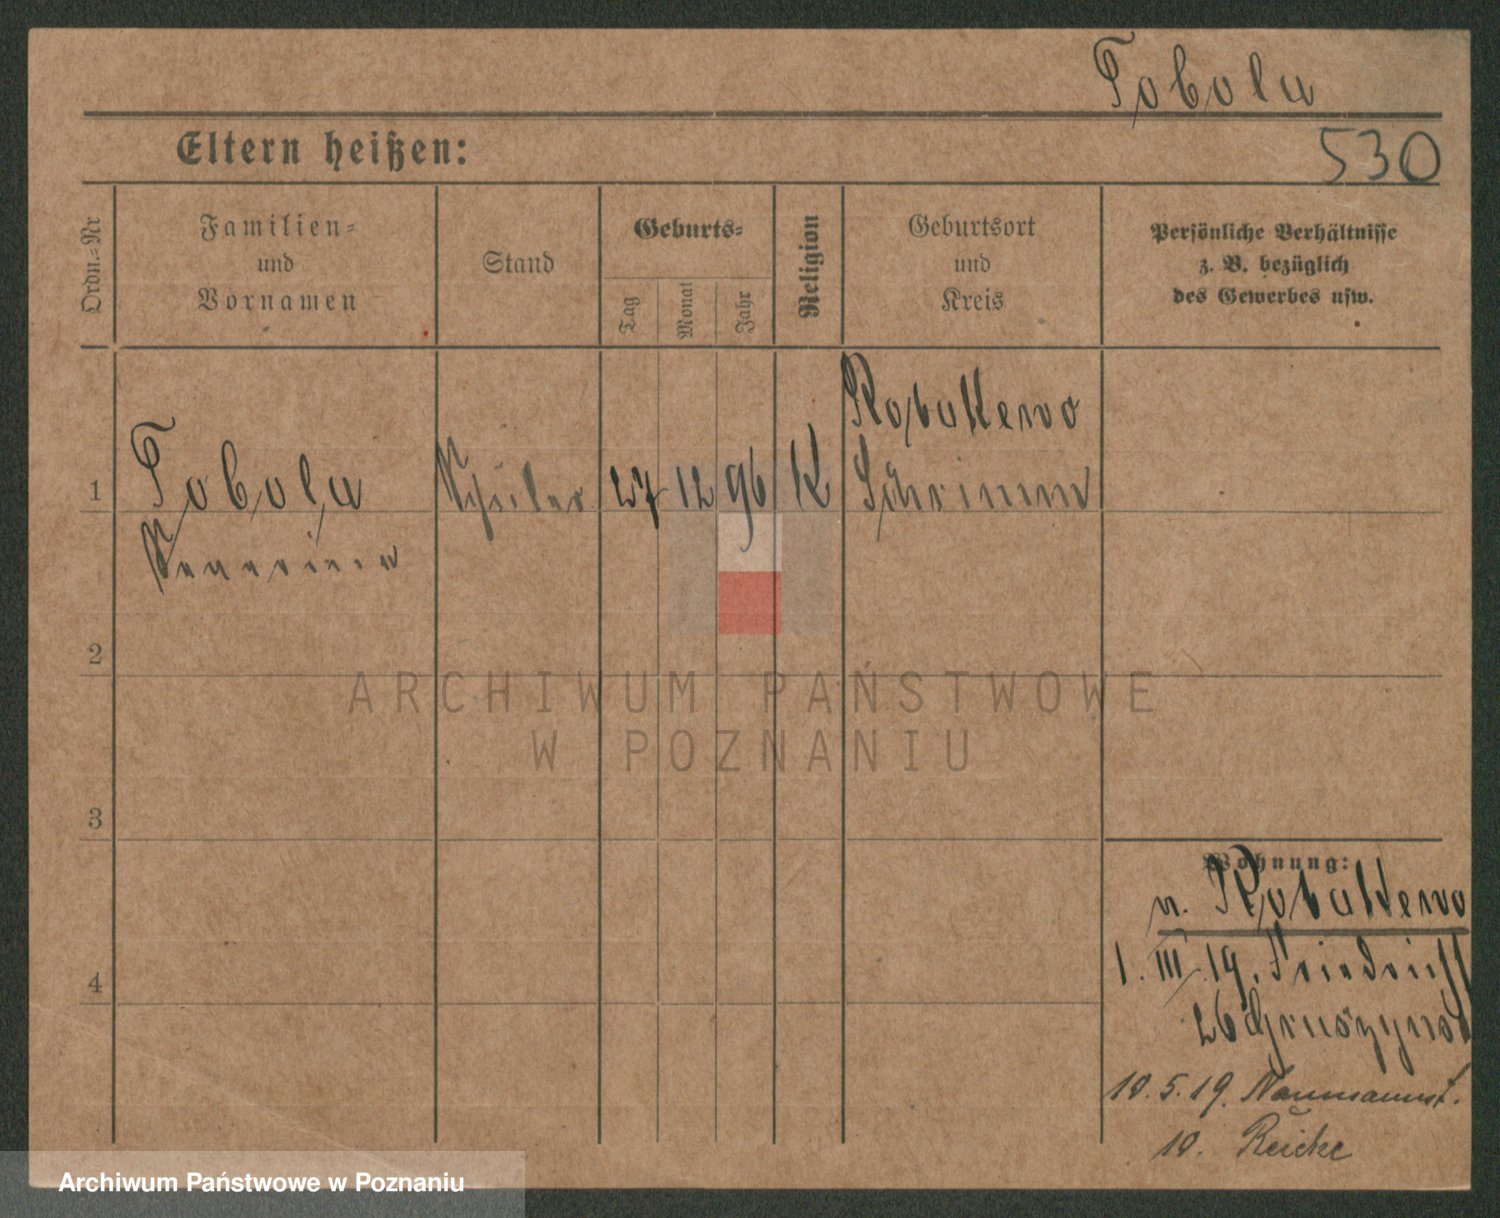 Tobola
530
Eltern heißen:
Ordn.-Nr
Familien-
und
Vornamen
Stand
Geburts-
Tag
Monat
Jahr
Religion
Geburtsort
und
Kreis
Persönliche Verhältnisse
z. B. bezüglich
des Gewerbes usw.
1
Tobola
Schüler
27 12 96
K
Schrimm
2
3
4
Wohnung:
n.
1. III. 19. Friedrichst
26
10. 5. 19. Naumannst.
10. Reicke
ARCHIWUM PAŃSTWOWE
W POZNANIU
Archiwum Państwowe w Poznaniu